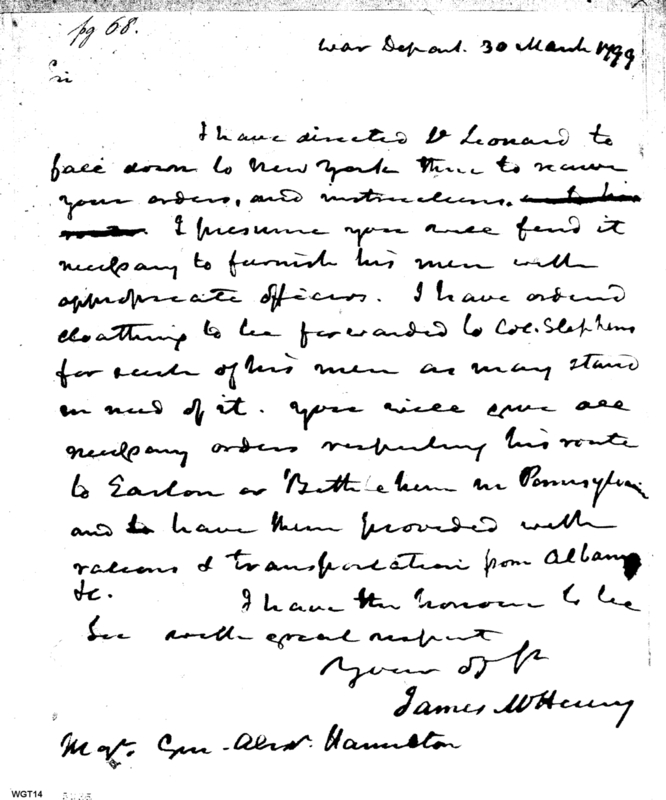 pg 68.
War Depart. 30 March 1799
Sir
I have directed Lt Leonard to
fall down to New York there to receive
your orders, and instructions.
I presume you will find it
necessary to furnish his men with
appropriate officers. I have ordered
cloathing to be forwarded to Col. Stephens
for such of his men as may stand
in need of it. You will give all
necessary orders respecting his route
to Easton or Bethlehem in Pennsylvania
and to have them provided with
rations & transportation from Albany
&c. I have the honour to be
Sir with great respect
Your ob st
James McHenry
Majr. Gen. Alexr. Hamilton
WGT14